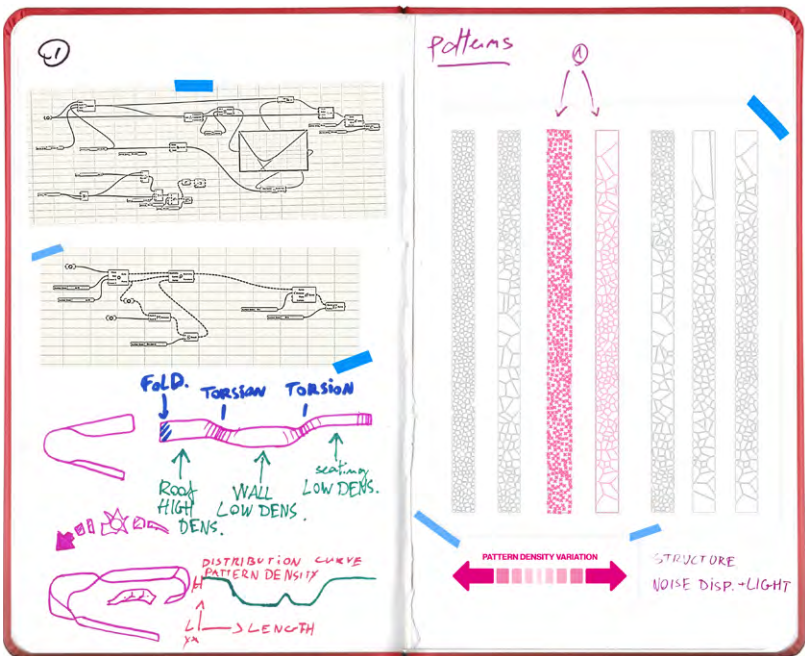 FOLD.
TORSION
TORSION
ROOF
HIGH
DENS.
WALL
LOW DENS.
seating
LOW DENS.
DISTRIBUTION CURVE
PATTERN DENSITY
H
L
LENGTH
Patterns
1
PATTERN DENSITY VARIATION
STRUCTURE
NOISE DISP.+LIGHT